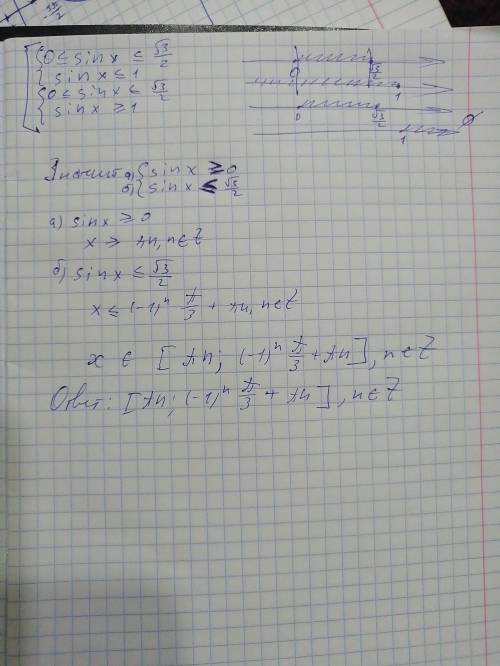 0 ≤ sin x ≤ √3/2
sin x ≤ 1
0 ≤ sin x ≤ √3/2
sin x ≥ 1
0 √3/2
1
0 √3/2
1 ∅
Значит а) { sin x ≥ 0
б) { sin x ≤ √3/2
а) sin x ≥ 0
x ≥ πn, n ∈ Z
б) sin x ≤ √3/2
x ≤ (-1)ⁿ π/3 + πn, n ∈ Z
x ∈ [ πn ; (-1)ⁿ π/3 + πn ], n ∈ Z
Ответ: [ πn ; (-1)ⁿ π/3 + πn ], n ∈ Z